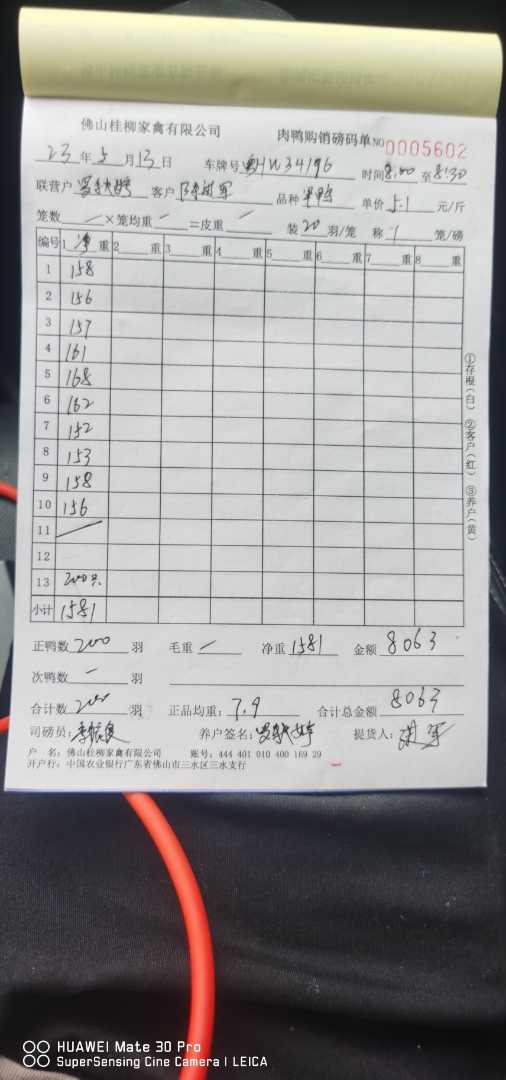 佛山桂柳家禽有限公司 肉鸭购销磅码单 NO 0005602
23 年 5 月 13 日 车牌号 HW34196 时间 8:00 至 8:30
联营户 客户 品种 单价 5.1 元/斤
笼数 — ×笼均重 — =皮重 — 装 20 羽/笼 称 1 笼/磅
编号 1 净 重 2 重 3 重 4 重 5 重 6 重 7 重 8 重
1 158
2 156
3 157
4 161
5 168
6 162
7 152
8 153
9 158
10 156
11
12
13 200只
小计 1581
①存根(白) ②客户(红) ③养户(黄)
正鸭数 200 羽 毛重 — 净重 1581 金额 8063
次鸭数 — 羽
合计数 200 羽 正品均重: 7.9 合计总金额 8063
司磅员: 养户签名: 提货人:
户 名: 佛山桂柳家禽有限公司 账号: 444 401 010 400 169 29
开户行: 中国农业银行广东省佛山市三水区三水支行
HUAWEI Mate 30 Pro
SuperSensing Cine Camera | LEICA